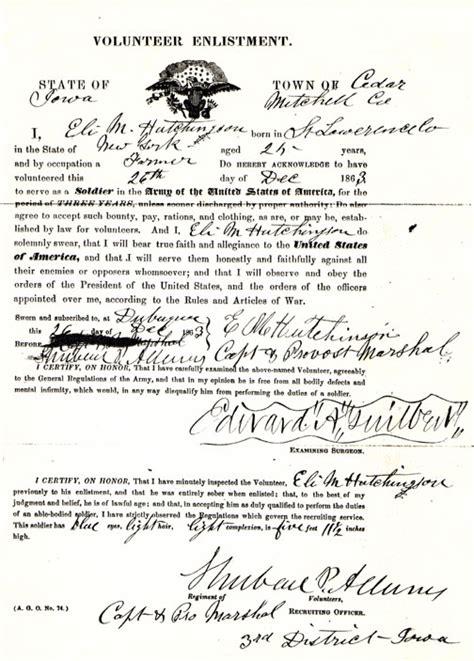 VOLUNTEER ENLISTMENT.
STATE OF TOWN OF Cedar
Iowa Mitchell Co
I, Eli M. Hutchingson born in St Lawrence Co
in the State of New York aged 25 years,
and by occupation a Farmer Do HEREBY ACKNOWLEDGE to have
volunteered this 26th day of Dec 1863
to serve as a Soldier in the Army of the United States of America, for the
period of THREE YEARS, unless sooner discharged by proper authority: Do also
agree to accept such bounty, pay, rations, and clothing, as are, or may be, estab-
lished by law for volunteers. And I, Eli M Hutchingson do
solemnly swear, that I will bear true faith and allegiance to the United States
of America, and that I will serve them honestly and faithfully against all
their enemies or opposers whomsoever; and that I will observe and obey the
orders of the President of the United States, and the orders of the officers
appointed over me, according to the Rules and Articles of War.
Sworn and subscribed to, at Dubuque
this 26 day of Dec 1863 E M Hutchinson
BEFORE
Capt & Provost Marshal
I CERTIFY, ON HONOR, That I have carefully examined the above-named Volunteer, agreeably
to the General Regulations of the Army, and that in my opinion he is free from all bodily defects and
mental infirmity, which would, in any way disqualify him from performing the duties of a soldier.
Edward A Guilbert
EXAMINING SURGEON.
I CERTIFY, ON HONOR, That I have minutely inspected the Volunteer, Eli M Hutchingson
previously to his enlistment, and that he was entirely sober when enlisted; that, to the best of my
judgment and belief, he is of lawful age; and that, in accepting him as duly qualified to perform the duties
of an able-bodied soldier, I have strictly observed the Regulations which govern the recruiting service.
This soldier has blue eyes, light hair, light complexion, is five feet 11½ inches
high.
Regiment of Volunteers,
(A. G. O. No. 74.) Capt & Pro Marshal RECRUITING OFFICER.
3rd District-Iowa